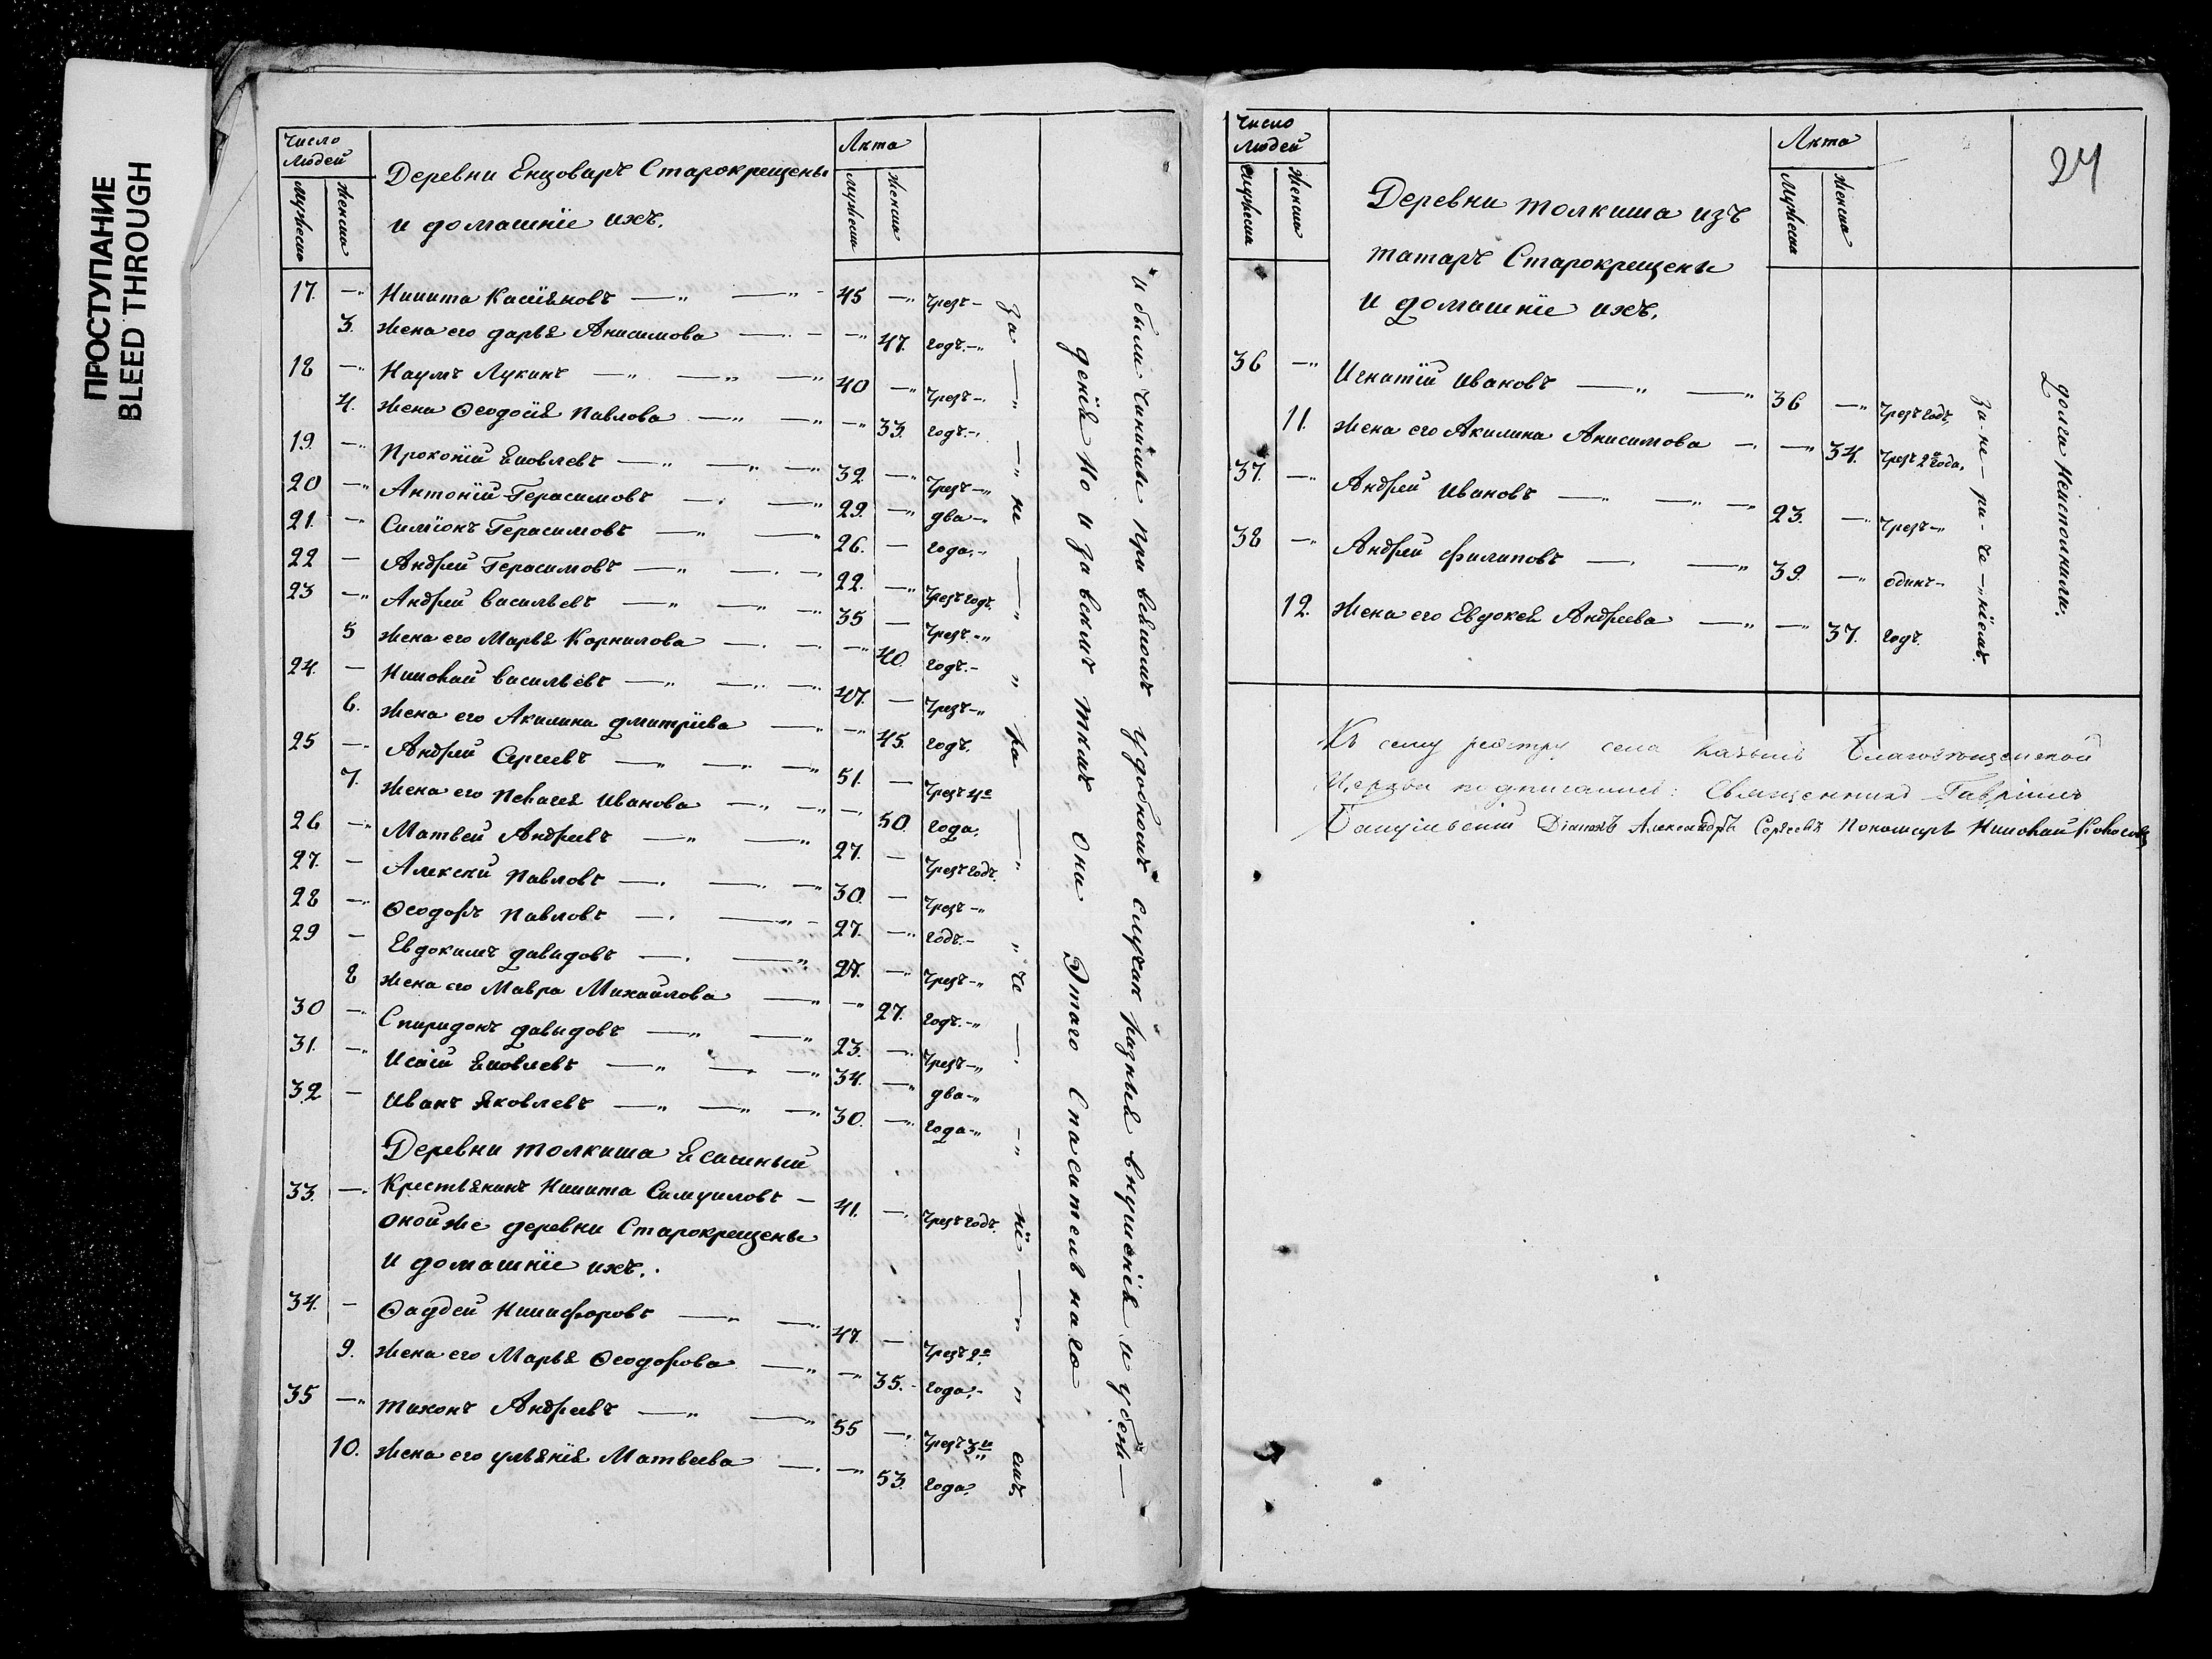 ПРОСТУПАНИЕ
BLEED THROUGH
Число людей
Мужеска
Женска
Деревни Енцоваръ Старокрещены
и домашнїе ихъ.
Лѣта
Мужеска
Женска
17. Никита Касїяновъ 45 чрезъ
3. жена его дарья Анисимова 47. годъ.
18 Наумъ Лукинъ 40 чрезъ
4. жена Ѳеодосїя Павлова 33. годъ.
19. Прокопїй Яковлевъ 32. чрезъ
20 Антонїй Герасимовъ 29. два
21. Симїонъ Герасимовъ 26. года.
22 Андрей Герасимовъ 22. чрезъ годъ.
23 Андрей васильевъ 35 чрезъ
5 жена его Марья Корнилова 40. годъ.
24. Николай васильевъ 47. чрезъ
6. жена его Акилина дмитрїева 45. годъ.
25 Андрей Сергеевъ 51. чрезъ 4е
7. жена его Пелагея Иванова 50. года.
26 Матвей Андреевъ 27. чрезъ годъ.
27. Алексей Павловъ 30. чрезъ
28 Ѳеодоръ Павловъ 27. годъ.
29 Евдокимъ давидовъ 27. чрезъ
8 жена его Мавра Михайлова 27. годъ.
30 Спиридонъ давидовъ 23. чрезъ
31. Исаїй Яковлевъ 34. два
32 Иванъ Яковлевъ 30. года
Деревни толкиша Ясашный
33. Крестьянинъ Никита Самуиловъ 41. чрезъ годъ.
оной же деревни Старокрещены
и домашнїе ихъ.
34. Ѳаддей Никифоровъ 47. чрезъ 2а
9. жена его Марья Ѳеодорова 35. года.
35 тихонъ Андреевъ 55 чрезъ 3и
10. жена его ульянїя Матвеева 53. года.
за не ра че нї емъ.
дения Но и за всемъ темъ они Этаго Спасительнаго
и были чинимы при всякомъ удобномъ случаи разныя внушенїя и убеж
24
Число людей
Мужеска
Женска
Деревни толкиша изъ
татаръ Старокрещены
и домашнїе ихъ.
Лѣта
Мужеска
Женска
36 Игнатїй Ивановъ 36 чрезъ годъ,
11. жена его Акилина Анисимова 34. чрезъ 2а года.
37. Андрей Ивановъ 23. чрезъ
38 Андрей Филиповъ 39. одинъ
12. жена его Евдокея Андреева 37. годъ.
за не ра че нїемъ.
долга Неисполнили.
Къ сему реэстру села Благовѣщенской
Церкви подписались: Священникъ Гаврїилъ
Дїаконъ Александръ Сергеевъ Пономарь Николай